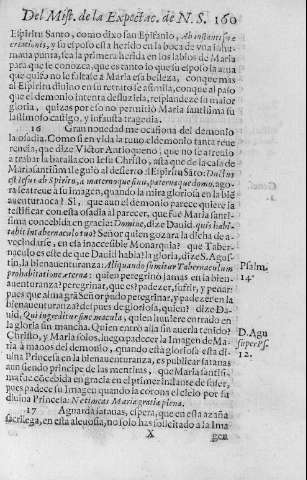 Del Mist. de la Expectac. de N. S. 160
Espiritu Santo, como dixo san Epifanio, Ab instantis
creationis, y su esposo està herido en la boca de vna inhumana
punta, sea la primera herida en los labios de Maria
para que se conozca, que es tanto lo que su esposo la ama
que quiso no le faltasse à Maria essa belleza, conque mas
al Espiritu diuino en su retrato se assimila, conque al passo
que el demonio intenta desluzirla, resplandeze su mayor
gloria, quizas por esso no permitiò Maria santissima su
lastimoso castigo, y infausta tragedia.
16 Gran nouedad me ocasiona del demonio
la osadia. Como si en vida la tuuo el demonio tanta reuerencia,
que dize Victor Antioqueno, que no se atreuio
a trabar la batalla con Iesu Christo, asta que de la casa de
Maria santissima le guiò al desierto el Espiritu Sãto: Ductus
est Iesus ab Spiritu, a materno que sinu, paternaque domo, agora
se atreue a su Imagen, quando la mira gloriosa en la bienauenturanca?
Si, que aun el demonio parece quiere la
testificar con esta osadia al parecer, que fue Maria santissima
concebida en gracia: Domine, dize Dauid, quis habitabit
in tabernaculo tuo? Señor quien gozarà la dicha de avecindarse,
en essa inaccesible Monarquia? que Tabernaculo
es este de que Dauid habla? la gloria, dize S. Agustin,
la bienauenturanza: Aliquando ponitur Tabernaculum
pro habitatione æterna: quien peregrino jamas en la bienauenturanza?
peregrinar, que es? padezer, sufrir, y penar:
pues que alma grã Señor pudo peregrinar, y padezer en la
bienauenturanza? despues de gloriosa, quien? dize Dauid,
Qui ingreditur sine macula, quien huuiere entrado en
la gloria sin mancha. Quien entrò alla sin auerla tenido?
Christo, y Maria solos, luego padecer la Imagen de Maria
à manos del demonio, quando està gloriosa essa diuina
Princesa en la bienauenturanza, es publicar satanas
aun siendo principe de las mentiras, que Maria santissima
fue cõcebida en gracia en el primer instante de su ser,
pues padece su Imagen quando la corona el cielo por su
diuina Princesa: Ne timeas Maria gratia plena.
17 Aguarda satanas, espera, que en esta azaña
sacrilega, en esta aleuosa, no solo has solicitado a la Ima
X gen
Psalm.
14.
D. Agu
super Ps.
12.